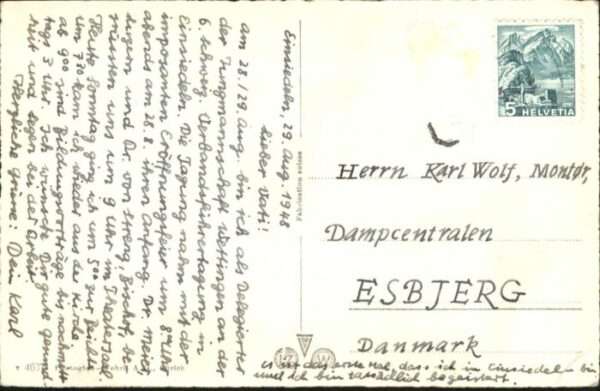 Einsiedeln, 29. Aug. 1948
Lieber Vati!
Am 28./29. Aug. bin ich als Delegierter
der Jungmannschaft Wettingen an der
6. schweiz. Verbandsführertagung in
Einsiedeln. Die Tagung nahm mit der
imposanten Eröffnungsfeier um 8 Uhr
abends am 28.8. ihren Anfang. Dr. Meier,
und Dr. von Streng, Bischof, be-
grüssten uns um 9 Uhr im Theatersaal.
Heute Sonntag ging ich um 5 zur Beichte
um 7³⁰ kam ich wieder aus der Kirche
ab 9⁰⁰ sind Bildungsvorträge bis nachmit-
tags 3 Uhr. Ich wünsche Dir gute Gesund-
heit und Segen bei der Arbeit.
Herzliche Grüsse: Dein Karl
Es ist das erste Mal, dass ich in Einsiedeln bin
und ich bin tatsächlich begeistert.
Fabrication suisse
5 HELVETIA
Herrn Karl Wolf, Montør,
Dampcentralen
ESBJERG
Danmark